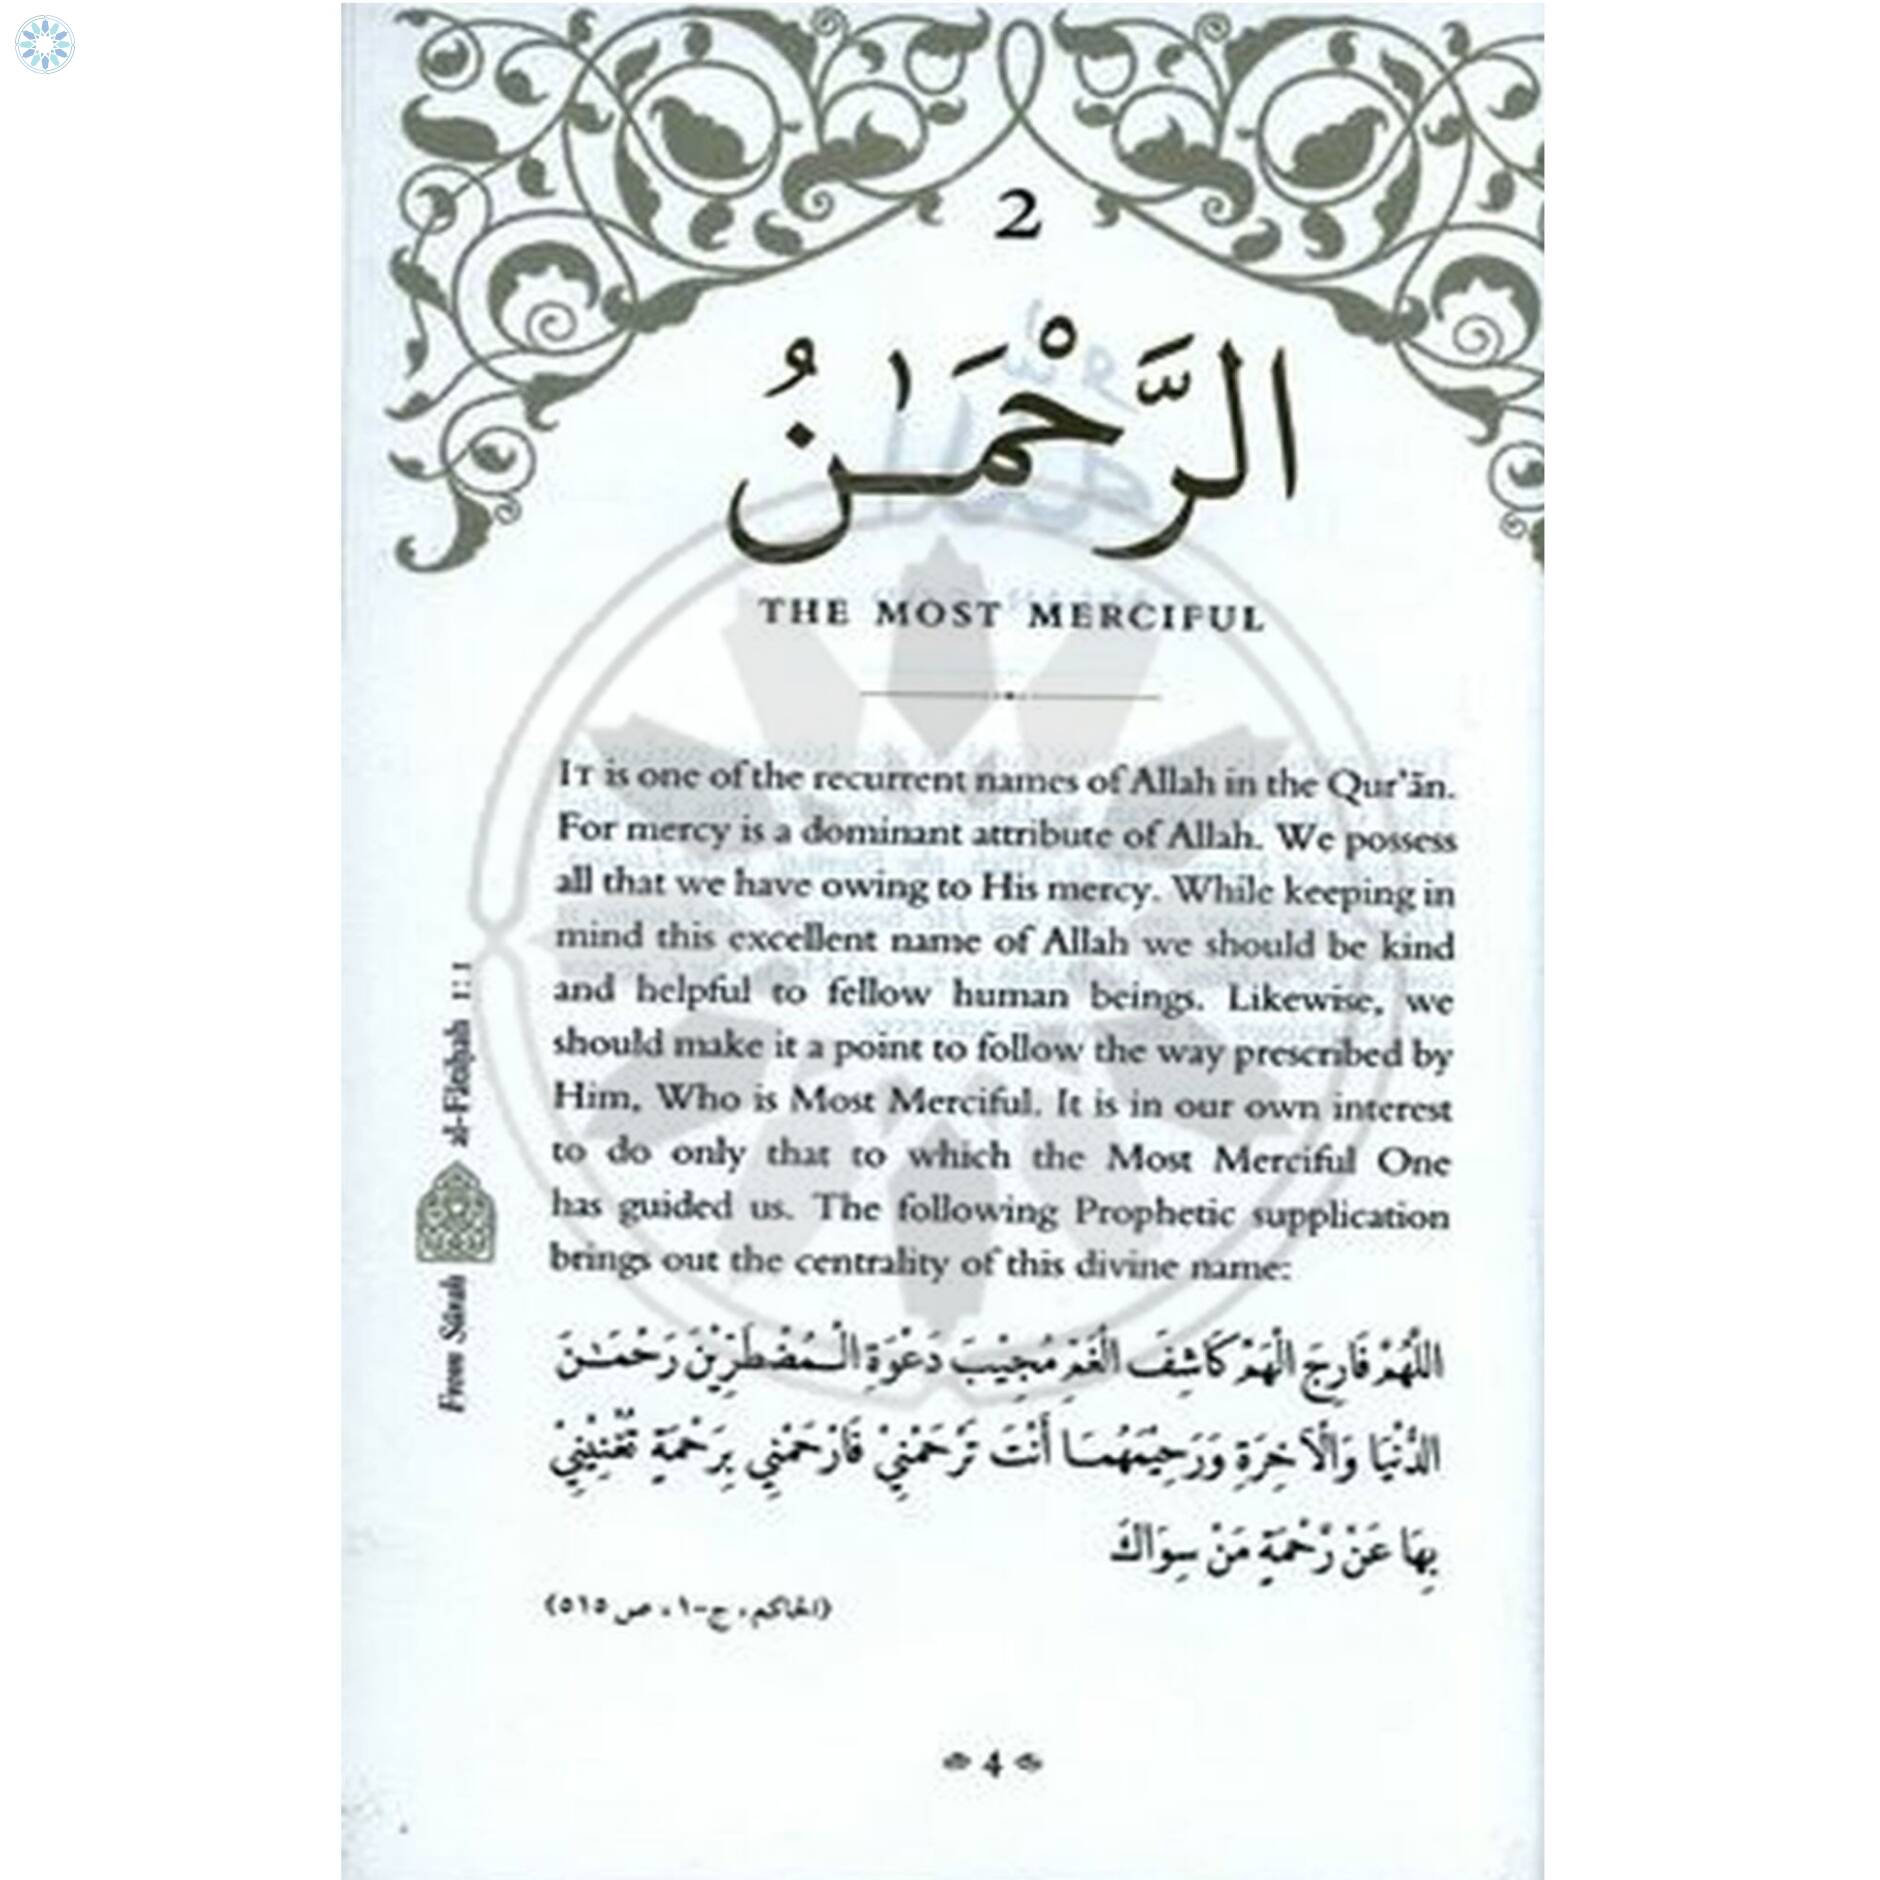 2
الرَّحْمَٰنُ
THE MOST MERCIFUL
IT is one of the recurrent names of Allah in the Qur'ān.
For mercy is a dominant attribute of Allah. We possess
all that we have owing to His mercy. While keeping in
mind this excellent name of Allah we should be kind
and helpful to fellow human beings. Likewise, we
should make it a point to follow the way prescribed by
Him, Who is Most Merciful. It is in our own interest
to do only that to which the Most Merciful One
has guided us. The following Prophetic supplication
brings out the centrality of this divine name:
اللّٰهُمَّ فَارِجَ الْهَمِّ كَاشِفَ الْغَمِّ مُجِيْبَ دَعْوَةِ الْمُضْطَرِّيْنَ رَحْمَٰنَ
الدُّنْيَا وَالْآخِرَةِ وَرَحِيْمَهُمَا أَنْتَ تَرْحَمُنِيْ فَارْحَمْنِي بِرَحْمَةٍ تُغْنِيْنِيْ
بِهَا عَنْ رَّحْمَةِ مَنْ سِوَاكَ
(الحاكم، ج-١، ص ٥١٥)
From Sūrah al-Fātiḥah 1:1
4